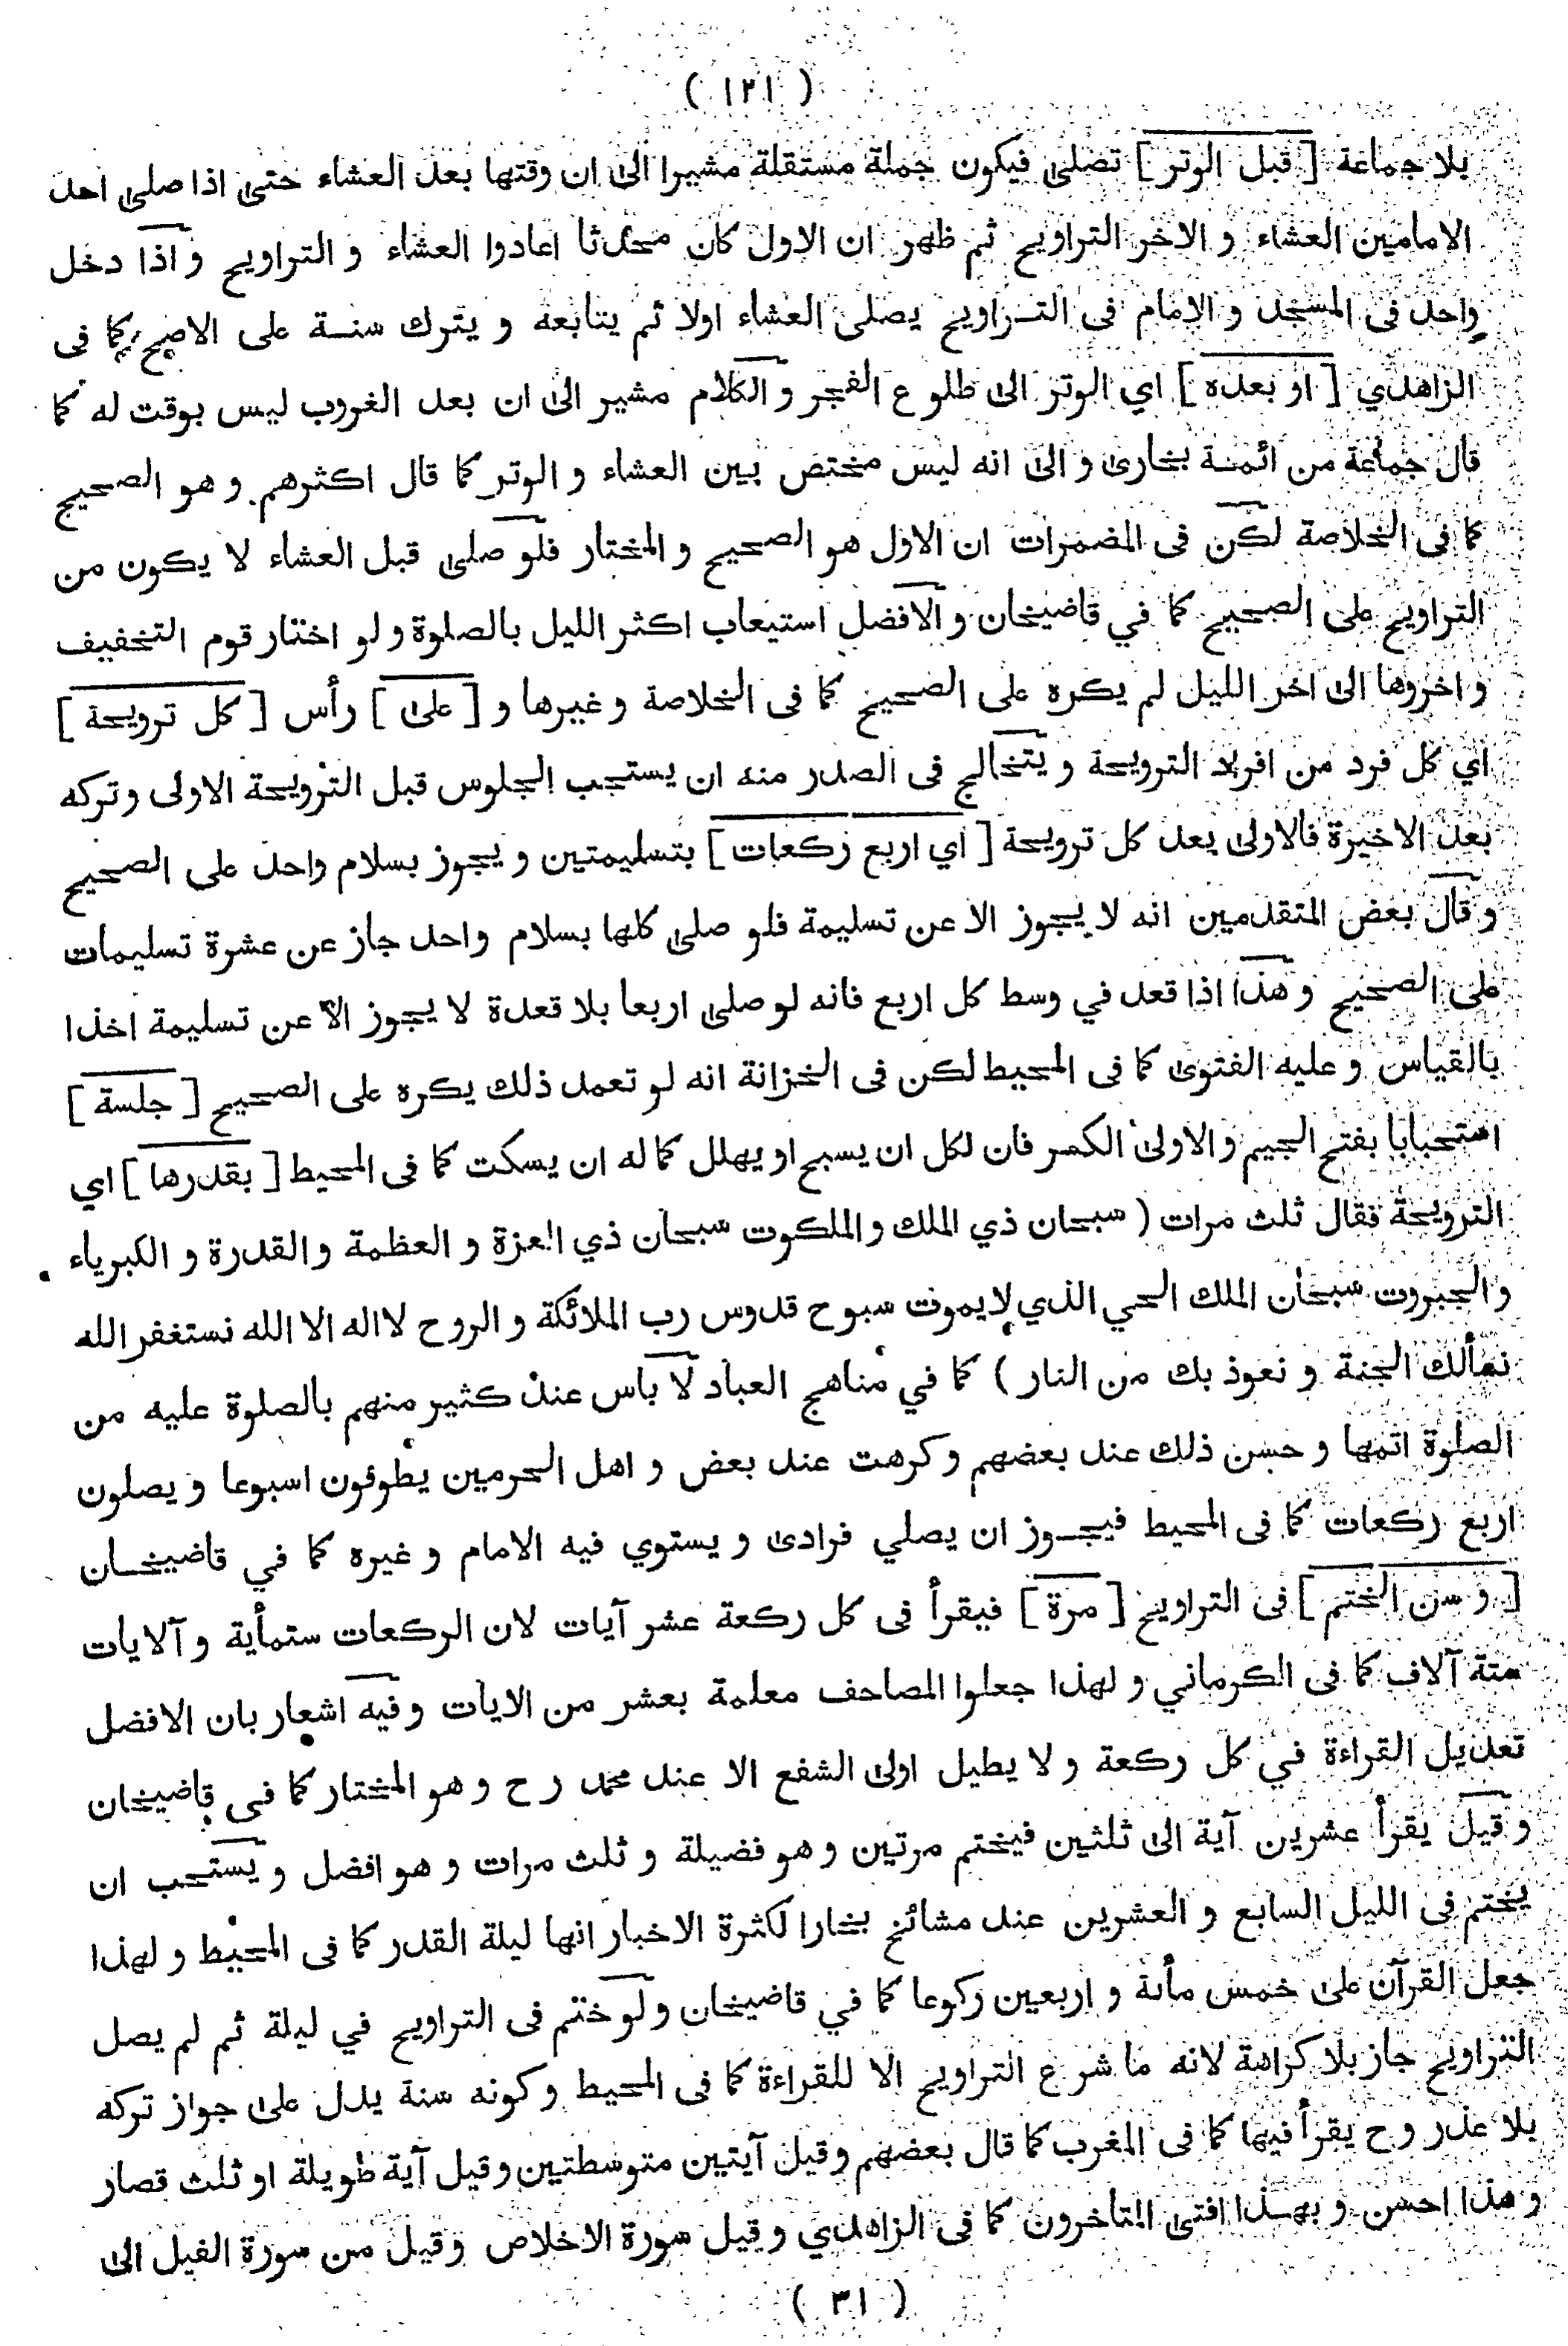 ( ١٢١ )
بلا جماعة [ قبل الوتر ] تصلى فيكون جملة مستقلة مشيرا الى ان وقتها بعد العشاء حتى اذا صلى احد
الامامين العشاء و الاخر التراويح ثم ظهر ان الاول كان محدثا اعادوا العشاء و التراويح و اذا دخل
واحد فى المسجد و الامام فى التــراويح يصلى العشاء اولا ثم يتابعه و يترك سنــة على الاصح كما فى
الزاهدي [ او بعده ] اي الوتر الى طلوع الفجر و الكلام مشير الى ان بعد الغروب ليس بوقت له كما
قال جماعة من ائمــة بخارى و الى انه ليس مختص بين العشاء و الوتر كما قال اكثرهم و هو الصحيح
كما فى الخلاصة لكن فى المضمرات ان الاول هو الصحيح و المختار فلو صلى قبل العشاء لا يكون من
التراويح على الصحيح كما في قاضيخان و الافضل استيعاب اكثر الليل بالصلوة و لو اختار قوم التخفيف
و اخروها الى اخر الليل لم يكره على الصحيح كما فى الخلاصة و غيرها و [ على ] رأس [ كل ترويحة ]
اي كل فرد من افراد الترويحة و يتخالج فى الصدر منه ان يستحب الجلوس قبل الترويحة الاولى و تركه
بعد الاخيرة فالاولى بعد كل ترويحة [ اي اربع ركعات ] بتسليمتين و يجوز بسلام واحد على الصحيح
و قال بعض المتقدمين انه لا يجوز الا عن تسليمة فلو صلى كلها بسلام واحد جاز عن عشرة تسليمات
على الصحيح و هذا اذا قعد في وسط كل اربع فانه لو صلى اربعا بلا قعدة لا يجوز الا عن تسليمة اخذا
بالقياس و عليه الفتوى كما فى المحيط لكن فى الخزانة انه لو تعمد ذلك يكره على الصحيح [ جلسة ]
استحبابا بفتح الجيم و الاولى الكسر فان لكل ان يسبح او يهلل كما له ان يسكت كما فى المحيط [ بقدرها ] اي
الترويحة فقال ثلث مرات ( سبحان ذي الملك و الملكوت سبحان ذي العزة و العظمة و القدرة و الكبرياء
و الجبروت سبحان الملك الحي الذي لا يموت سبوح قدوس رب الملائكة و الروح لا اله الا الله نستغفر الله
نسألك الجنة و نعوذ بك من النار ) كما في مناهج العباد لا باس عند كثير منهم بالصلوة عليه من
الصلوة اتمها و حسن ذلك عند بعضهم و كرهت عند بعض و اهل الحرمين يطوفون اسبوعا و يصلون
اربع ركعات كما فى المحيط فيجــوز ان يصلي فرادى و يستوي فيه الامام و غيره كما في قاضيخــان
[ و سن الختم ] فى التراويح [ مرة ] فيقرأ فى كل ركعة عشر آيات لان الركعات ستمأية و آلايات
ستة آلاف كما فى الكرماني و لهذا جعلوا المصاحف معلمة بعشر من الايات و فيه اشعار بان الافضل
تعديل القراءة في كل ركعة و لا يطيل اولى الشفع الا عند محمد ر ح و هو المختار كما فى قاضيخان
و قيل يقرأ عشرين آية الى ثلثين فيختم مرتين و هو فضيلة و ثلث مرات و هو افضل و يستحب ان
يختم فى الليل السابع و العشرين عند مشائخ بخارا لكثرة الاخبار انها ليلة القدر كما فى المحيط و لهذا
جعل القرآن على خمس مأىة و اربعين ركوعا كما في قاضيخان و لو ختم فى التراويح في ليلة ثم لم يصل
التراويح جاز بلا كراهة لانه ما شرع التراويح الا للقراءة كما فى المحيط و كونه سنة يدل على جواز تركه
بلا عذر و ح يقرأ فيها كما فى المغرب كما قال بعضهم و قيل آيتين متوسطتين و قيل آية طويلة او ثلث قصار
و هذا احسن و بهــذا افتى المتأخرون كما فى الزاهدي و قيل سورة الاخلاص و قيل من سورة الفيل الى
( ٣١ )